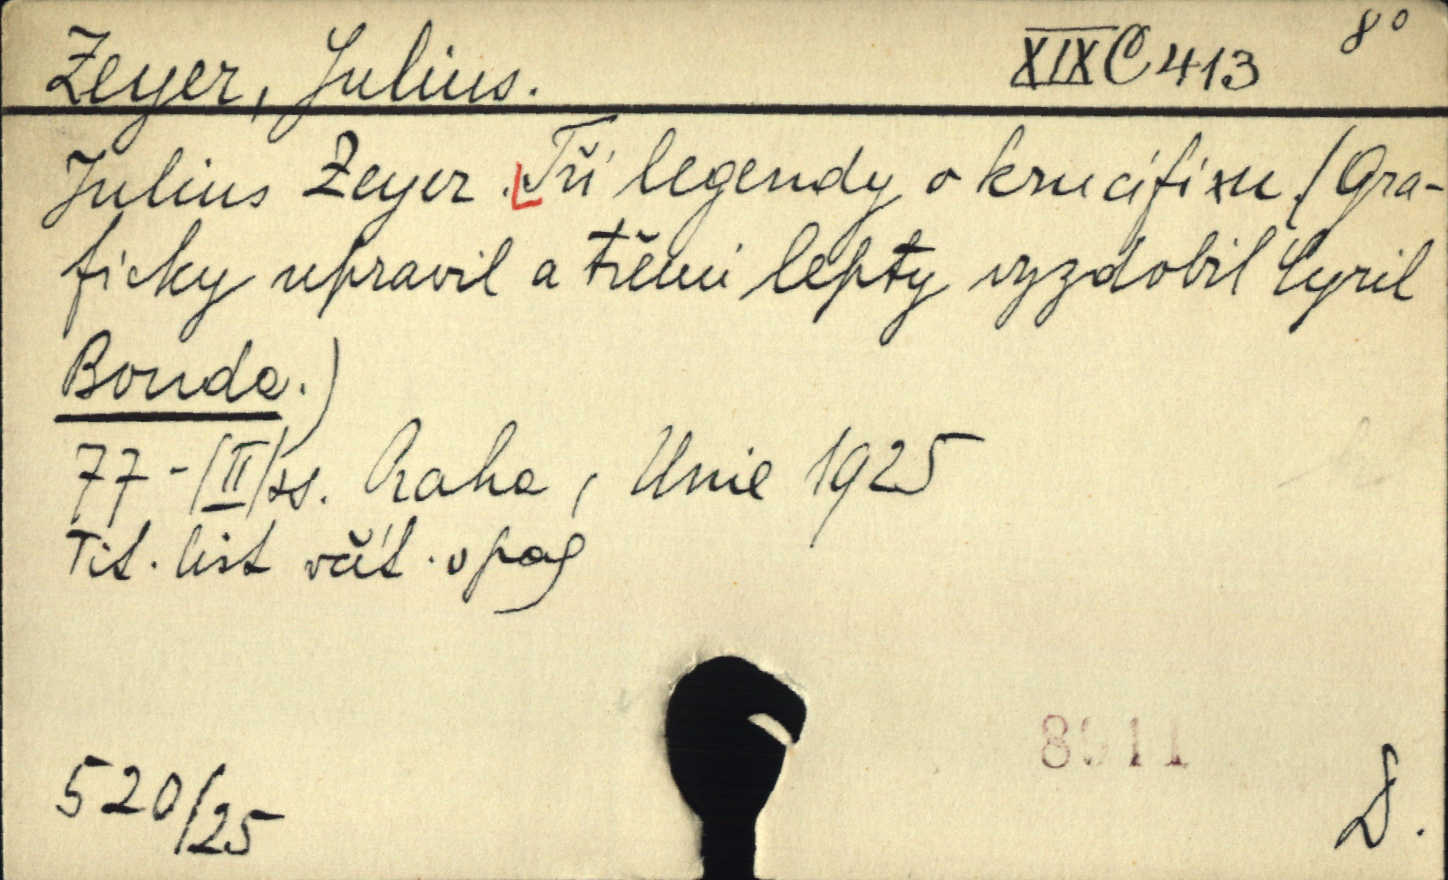 Zeyer, Julius.
XIX C 413
8°
Julius Zeyer. Tři legendy o krucifixu. (Gra-
ficky upravil a třemi lepty vyzdobil Cyril
Bouda.)
77-(II) ss. Praha, Unie 1925
Tit. list včít. v pag
520/25
D.